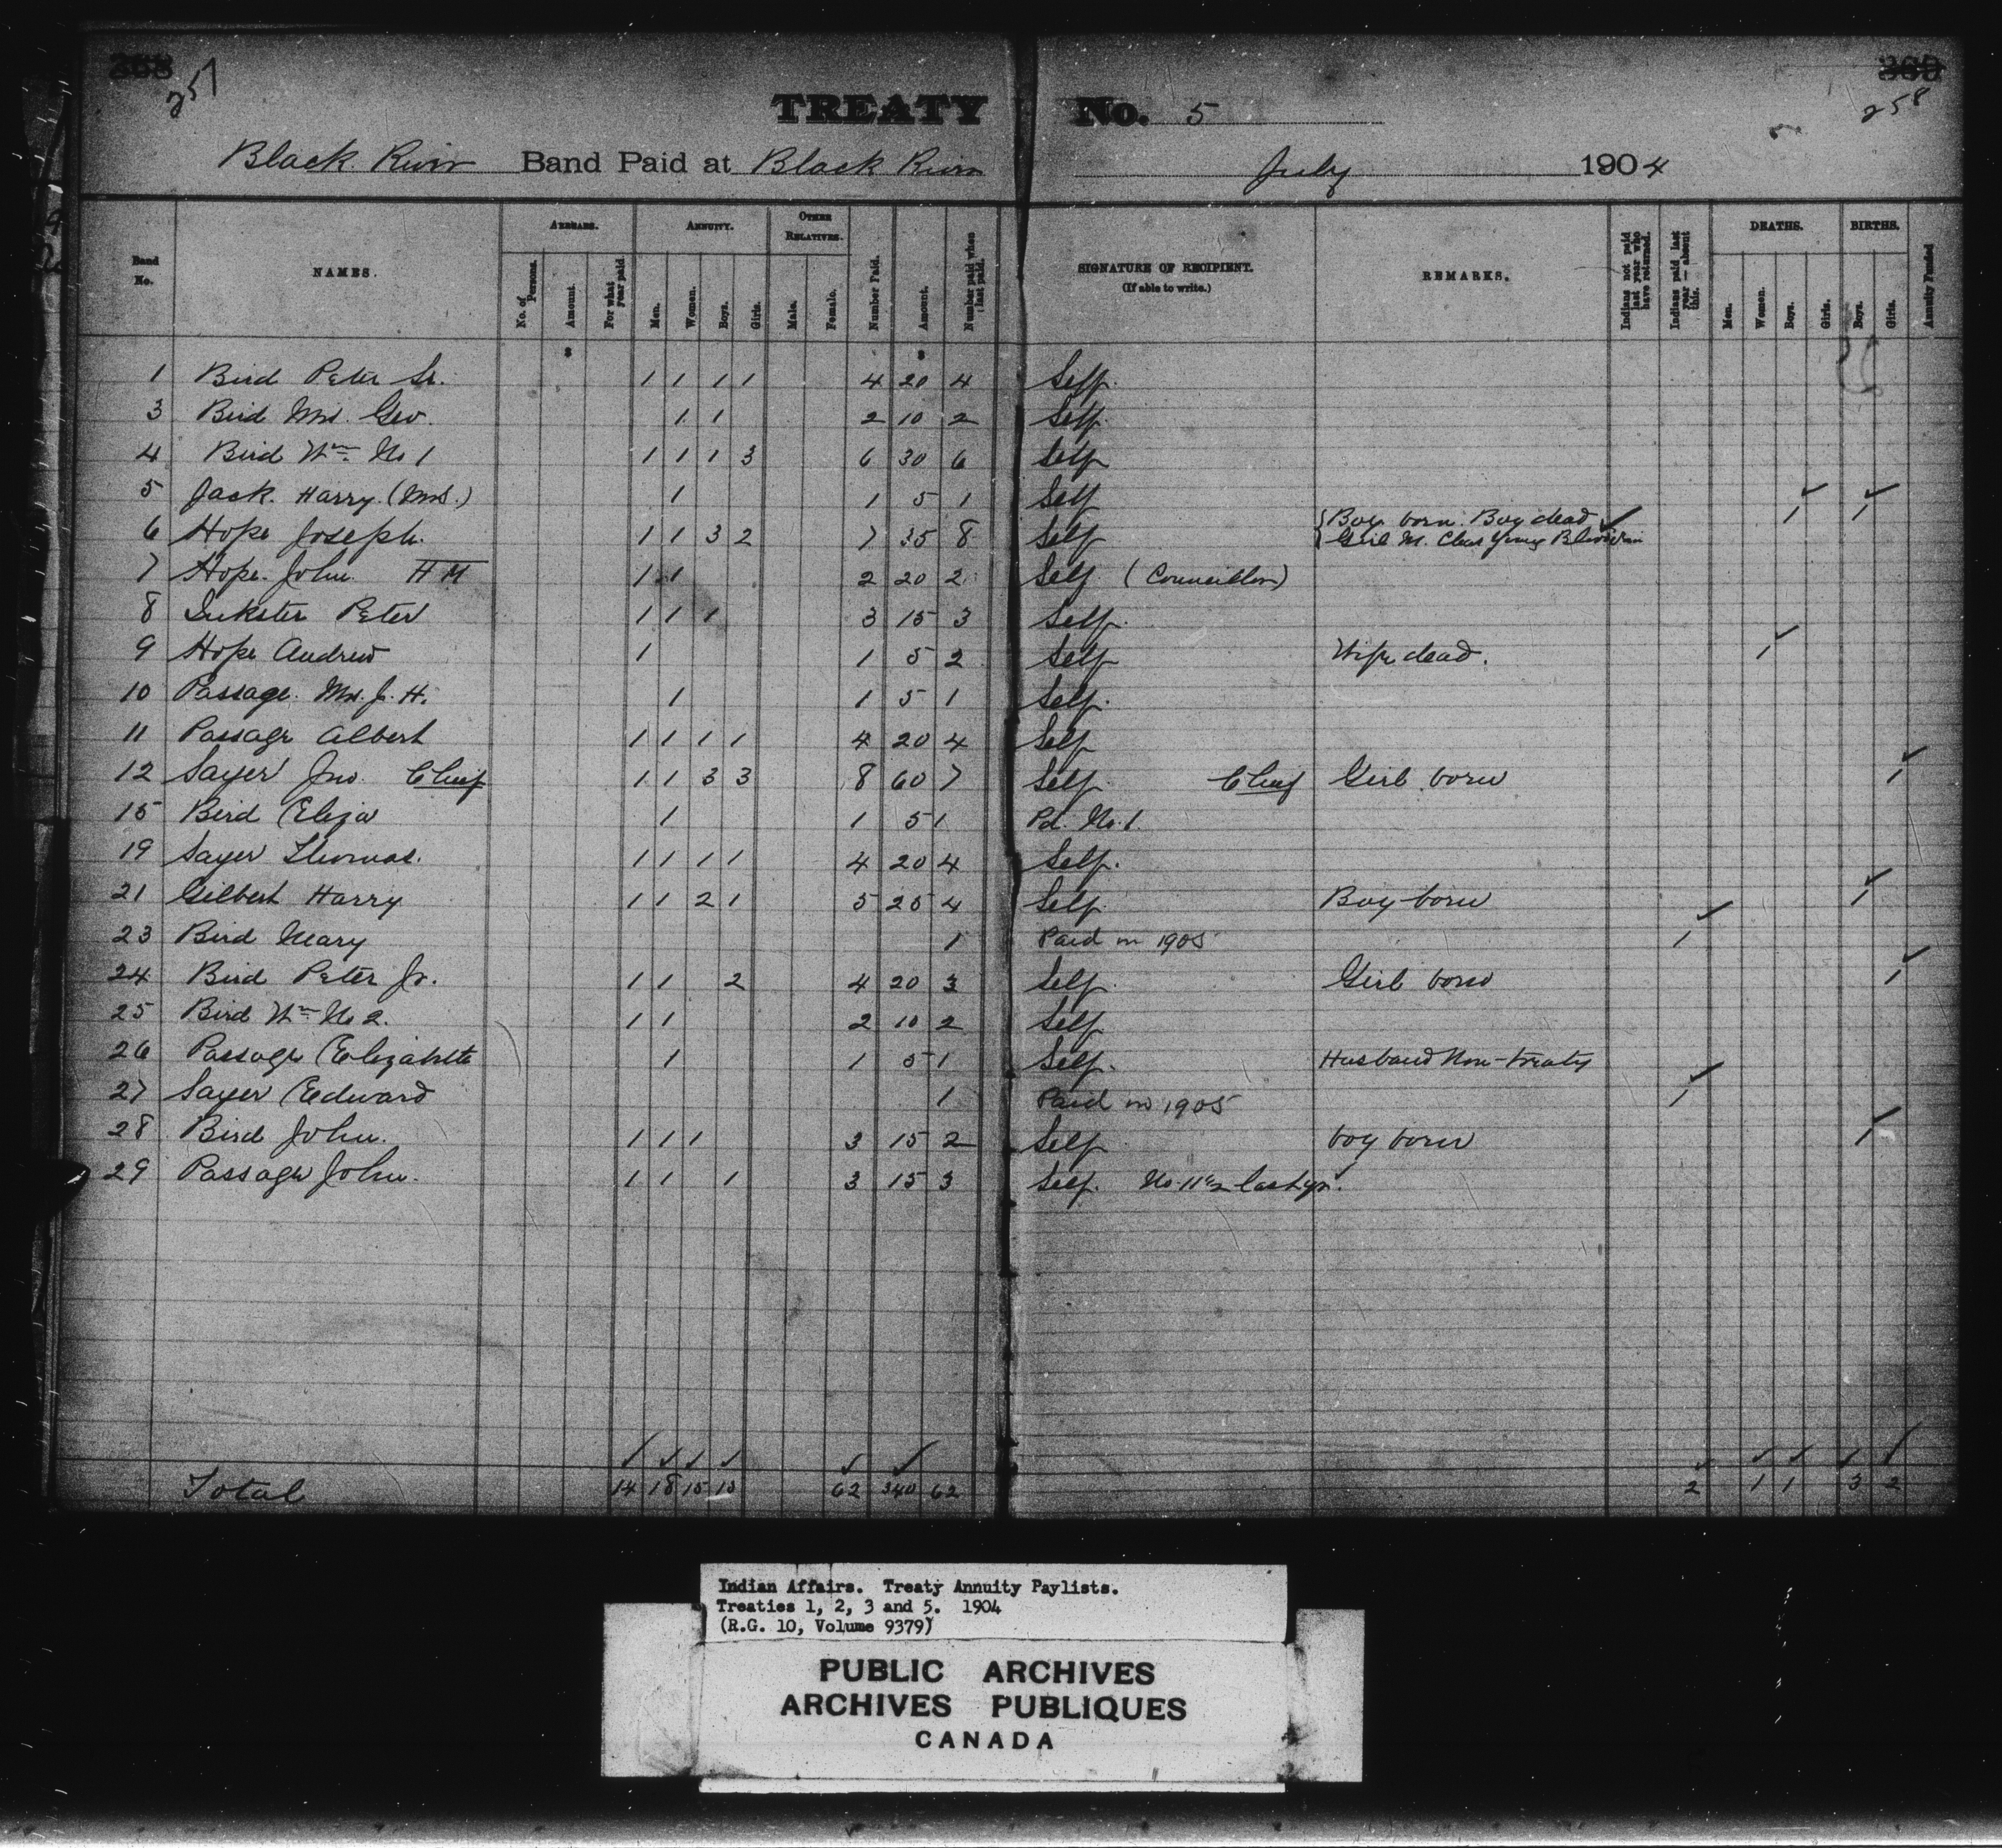 257
258
TREATY No. 5
Black River Band Paid at Black River July 1904
Band No. NAMES. ARREARS. ANNUITY. OTHER RELATIVES. Number Paid. Amount. Number paid when last paid. SIGNATURE OF RECIPIENT. (If able to write.) REMARKS. Indians not paid last year who have returned. Indians paid last year — absent this. DEATHS. BIRTHS. Annuity Funded
No. of Persons. Amount. For what year paid. Men. Women. Boys. Girls. Male. Female. Men. Women. Boys. Girls. Boys. Girls.
$ $
1 Bird Peter Sr. 1 1 1 1 4 20 4 Self.
3 Bird Mrs. Geo. 1 1 2 10 2 Self.
4 Bird Wm. No 1 1 1 1 3 6 30 6 Self
5 Jack. Harry. (Mrs.) 1 1 5 1 Self
6 Hope Joseph. 1 1 3 2 7 35 8 Self { Boy born. Boy dead ✓ 1 ✓ 1 ✓
{ Girl M. Chas Young
7 Hope. John H M 1 1 2 20 2 Self (Councillor)
8 Inkster Peter 1 1 1 3 15 3 Self.
9 Hope Andrew 1 1 5 2 Self Wife dead. 1 ✓
10 Passage. Mrs. J. H. 1 1 5 1 Self.
11 Passage Albert 1 1 1 1 4 20 4 Self
12 Sayer Jno. Chief 1 1 3 3 8 60 7 Self Chief Girl born 1 ✓
15 Bird Eliza 1 1 5 1 Pd. No. 1.
19 Sayer Thomas. 1 1 1 1 4 20 4 Self.
21 Gilbert Harry 1 1 2 1 5 25 4 Self Boy born 1 ✓
23 Bird Mary 1 Paid in 1905 1 ✓
24 Bird Peter Jr. 1 1 2 4 20 3 Self Girl born 1 ✓
25 Bird Wm. No 2. 1 1 2 10 2 Self
26 Passage Elizabeth 1 1 5 1 Self. Husband Non-treaty
27 Sayer Edward 1 Paid in 1905 1 ✓
28 Bird John. 1 1 1 3 15 2 Self boy born 1 ✓
29 Passage John. 1 1 1 3 15 3 Self. No. 11½ last yr.
✓ ✓ ✓ ✓ ✓ ✓ ✓ ✓ ✓ ✓ ✓
Total 14 18 15 15 62 340 62 2 1 1 3 2
Indian Affairs. Treaty Annuity Paylists.
Treaties 1, 2, 3 and 5. 1904
(R.G. 10, Volume 9379)
PUBLIC ARCHIVES
ARCHIVES PUBLIQUES
CANADA